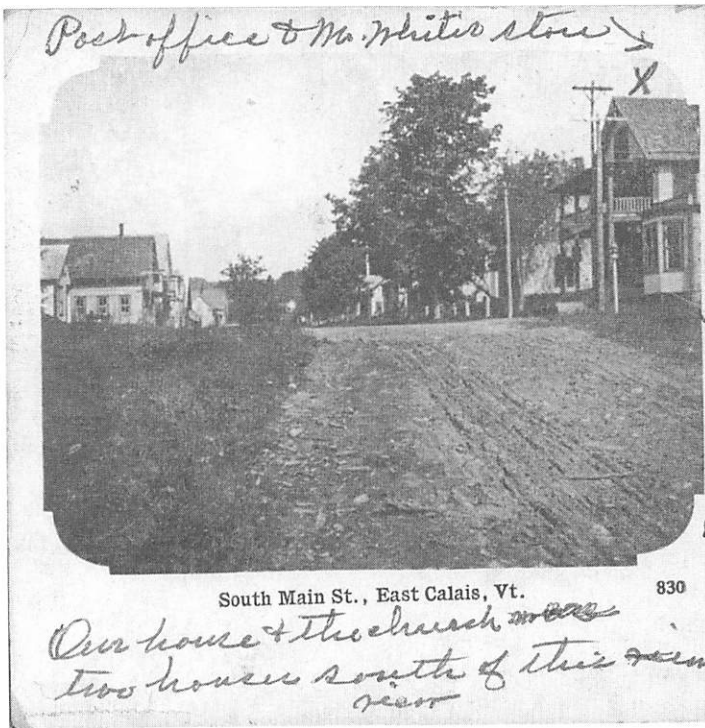 Post office & Mr. White's store
X
South Main St., East Calais, Vt.
830
Our house & the church
two houses south of this
view